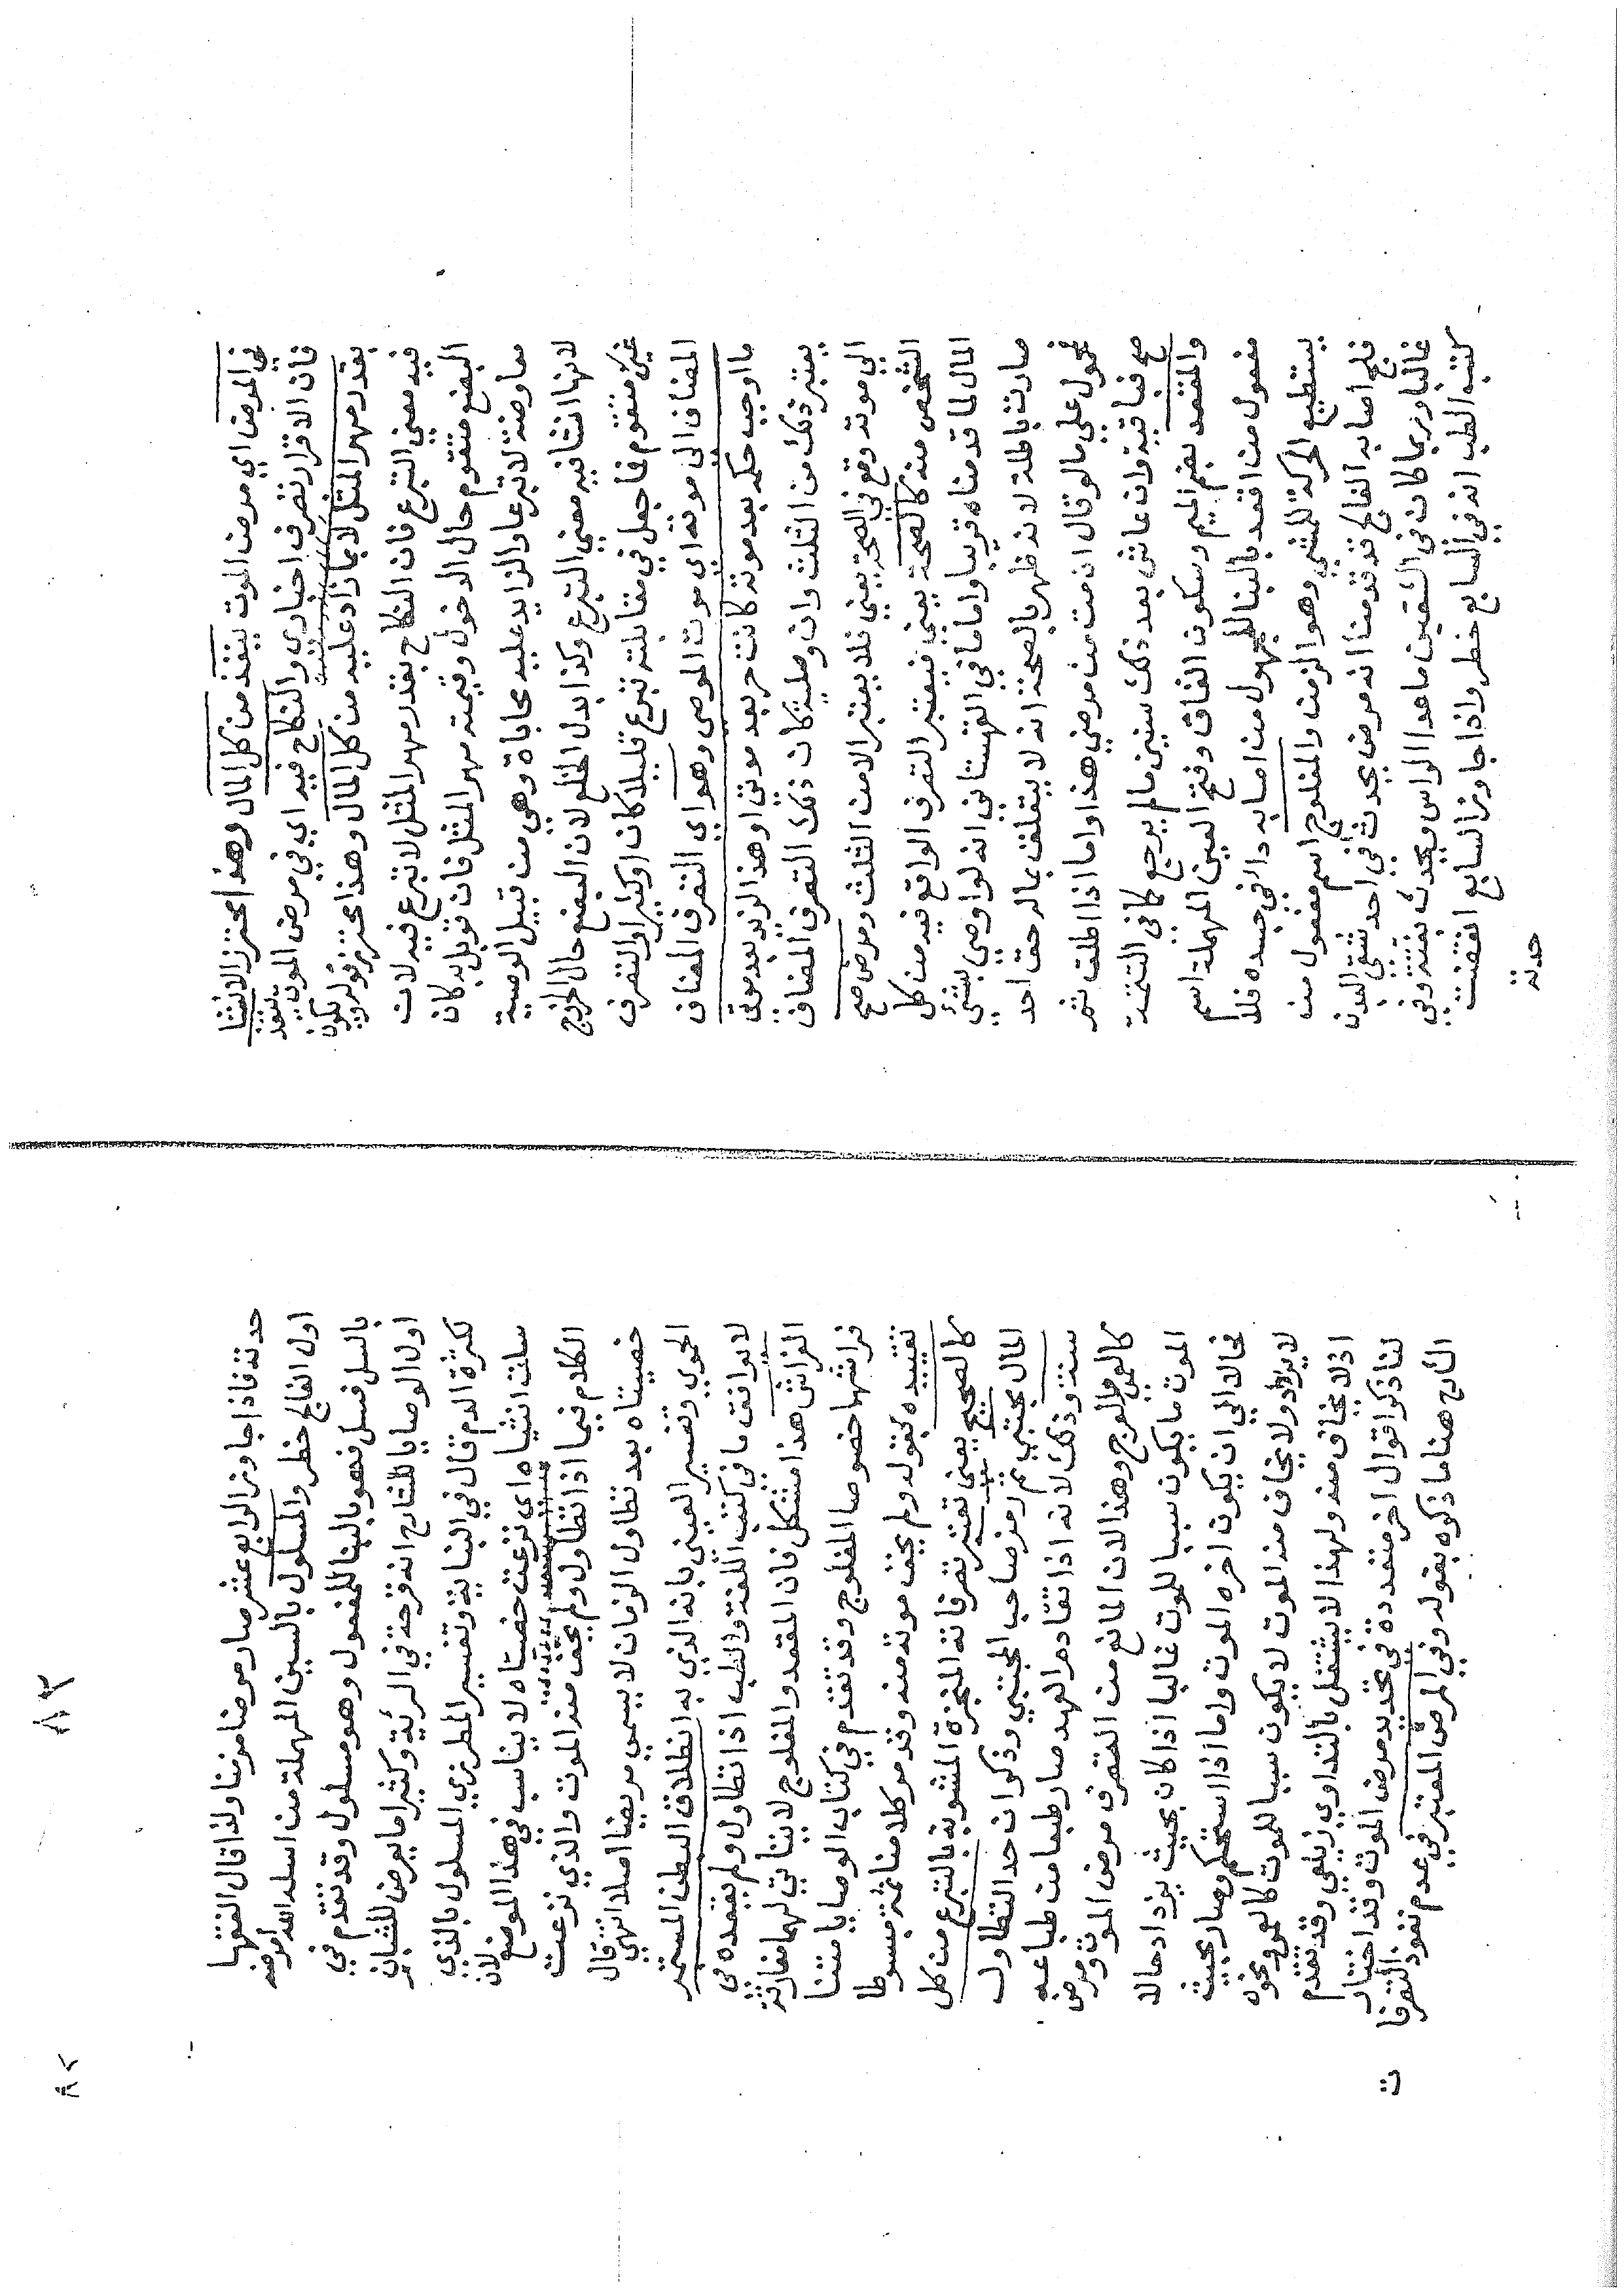 في المرض اي مرض الموت ينفذ من كل المال وهذا محترز الانشا
فان الاقرار تصرف اخباري والنكاح فيه اي في مرض الموت ينفذ
بقدر مهر المثل لا بما زاد عليه من كل المال وهذا محترز قوله ويكون
فيه معني التبرع فان النكاح بقدر مهر المثل لا تبرع فيه لان
البضع متقوم حال الدخول وقيمته مهر المثل فان قوبل به كان
معاوضة لا تبرعا والزايد عليه محاباة وهي من قبيل الوصية
لانها انشا فيه معني التبرع وكذا بدل الخلع لان البضع حال الخروج
غير متقوم فما جعل في مقابلته تبرع قليلا كان او كثيرا والتصرف
المضاف الى موته اي موت الموصى وهو اي التصرف المضاف
ما اوجب حكمه بعد موته كانت حر بعد موتي او هذا لزيد بعد موتي
يعتبر ذلك من الثلث وان وصلية كان ذلك التصرف المضاف
الي موته وقع في الصحة يعني فلا يعتبر الا من الثلث ومرض صح
الشخص منه كالصحة يعني فيعتبر التصرف الواقع فيه من كل
المال لما قدمناه قريبا واما ما في القهستاني انه لو اوصي بشئ
صارت باطلة لانه ظهر بالصحة انه لا يتعلق بماله حق احد
فمحمول علي ما لو قال ان مت من مرضي هذا واما اذا اطلق ثم
صح فباقية وان عاش بعد ذلك سنين ما لم يرجع كما في التتمة
والمقعد بضم الميم وسكون القاف وفتح العين المهملة اسم
مفعول من اقعد بالبنا للمجهول من اصابه دا في جسده فلا
يستطيع الحركة للمشي وهو الزمن والمفلوج اسم مفعول من
فلج اصابه الفالج قد قدمنا انه مرض يحدث في احد شقي البدن
غالبا وربما كان في الشقين ما عدا الراس ويحدث بغتة وفي
كتب الطب انه في السابع خطر واذا جاوز السابع انقضت
حدته
٨٢
٨٢
حدته فاذا جاوز الرابع عشر صار مرضا مزمنا ولذا قال الفقها
اول الفالج خطر والمسلول بالسين المهملة من اسله الله امرضه
بالسل فسل فهو بالبنا للمفعول وهو مسلول وقد تقدم في
اول الوصايا للشارح انه قرحة في الرئة وكثيرا ما يعرض للشبان
لكثرة الدم قال في البناية وتفسير المطرزي المسلول بالذي
سلت انثياه اي نزعت خصيتاه لا يناسب في هذا الموضع لان
الكلام فيما اذا تطاول ولم يخف منه الموت والذي نزعت
خصيتاه بعد تطاول الزمان لا يسمى مريضا اصلا انتهي قال
الحموي وتفسير العيني بانه الذي به انطلاق البطن المستمر
لا يوافق ما في كتب اللغة والطب اذا تطاول ولم يقعده في
الفراش هذا مشكل فان المقعد والمفلوج لا يتاتي لهما مفارقة
فراشهما خصوصا المفلوج وقد تقدم في كتاب الوصايا متنا
تقييده بقوله ولم يخف موته منه وقد مر كلامنا ثمة مبسوطا
كالصحيح يعني تعتبر تصرفاته المنجزة المشوبة بالتبرع من كل
المال مجتبي ثم رمز صاحب المجتبي وذكر ان حد التطاول
سنة وذلك لانه اذا تقادم العهد صار طبعا من طباعه
كالعمي والعرج وهذا لان المانع من التصرف مرض الموت ومرض
الموت ما يكون سببا للموت غالبا اذا كان بحيث يزداد حالا
فحالا الي ان يكون اخره الموت واما اذا استحكم وصار بحيث
لا يزداد ولا يخاف منه الموت لا يكون سببا للموت كالعمي ونحوه
اذ لا يخاف منه ولهذا لا يشتغل بالتداوي زيلعي وقد تقدم
لنا ذكر اقوال اخر متعددة في تحديد مرض الموت وقد اختار
الشارح هنا ما ذكره بقوله وفي المرض المعتبر في عدم نفوذ التصرفا
ت